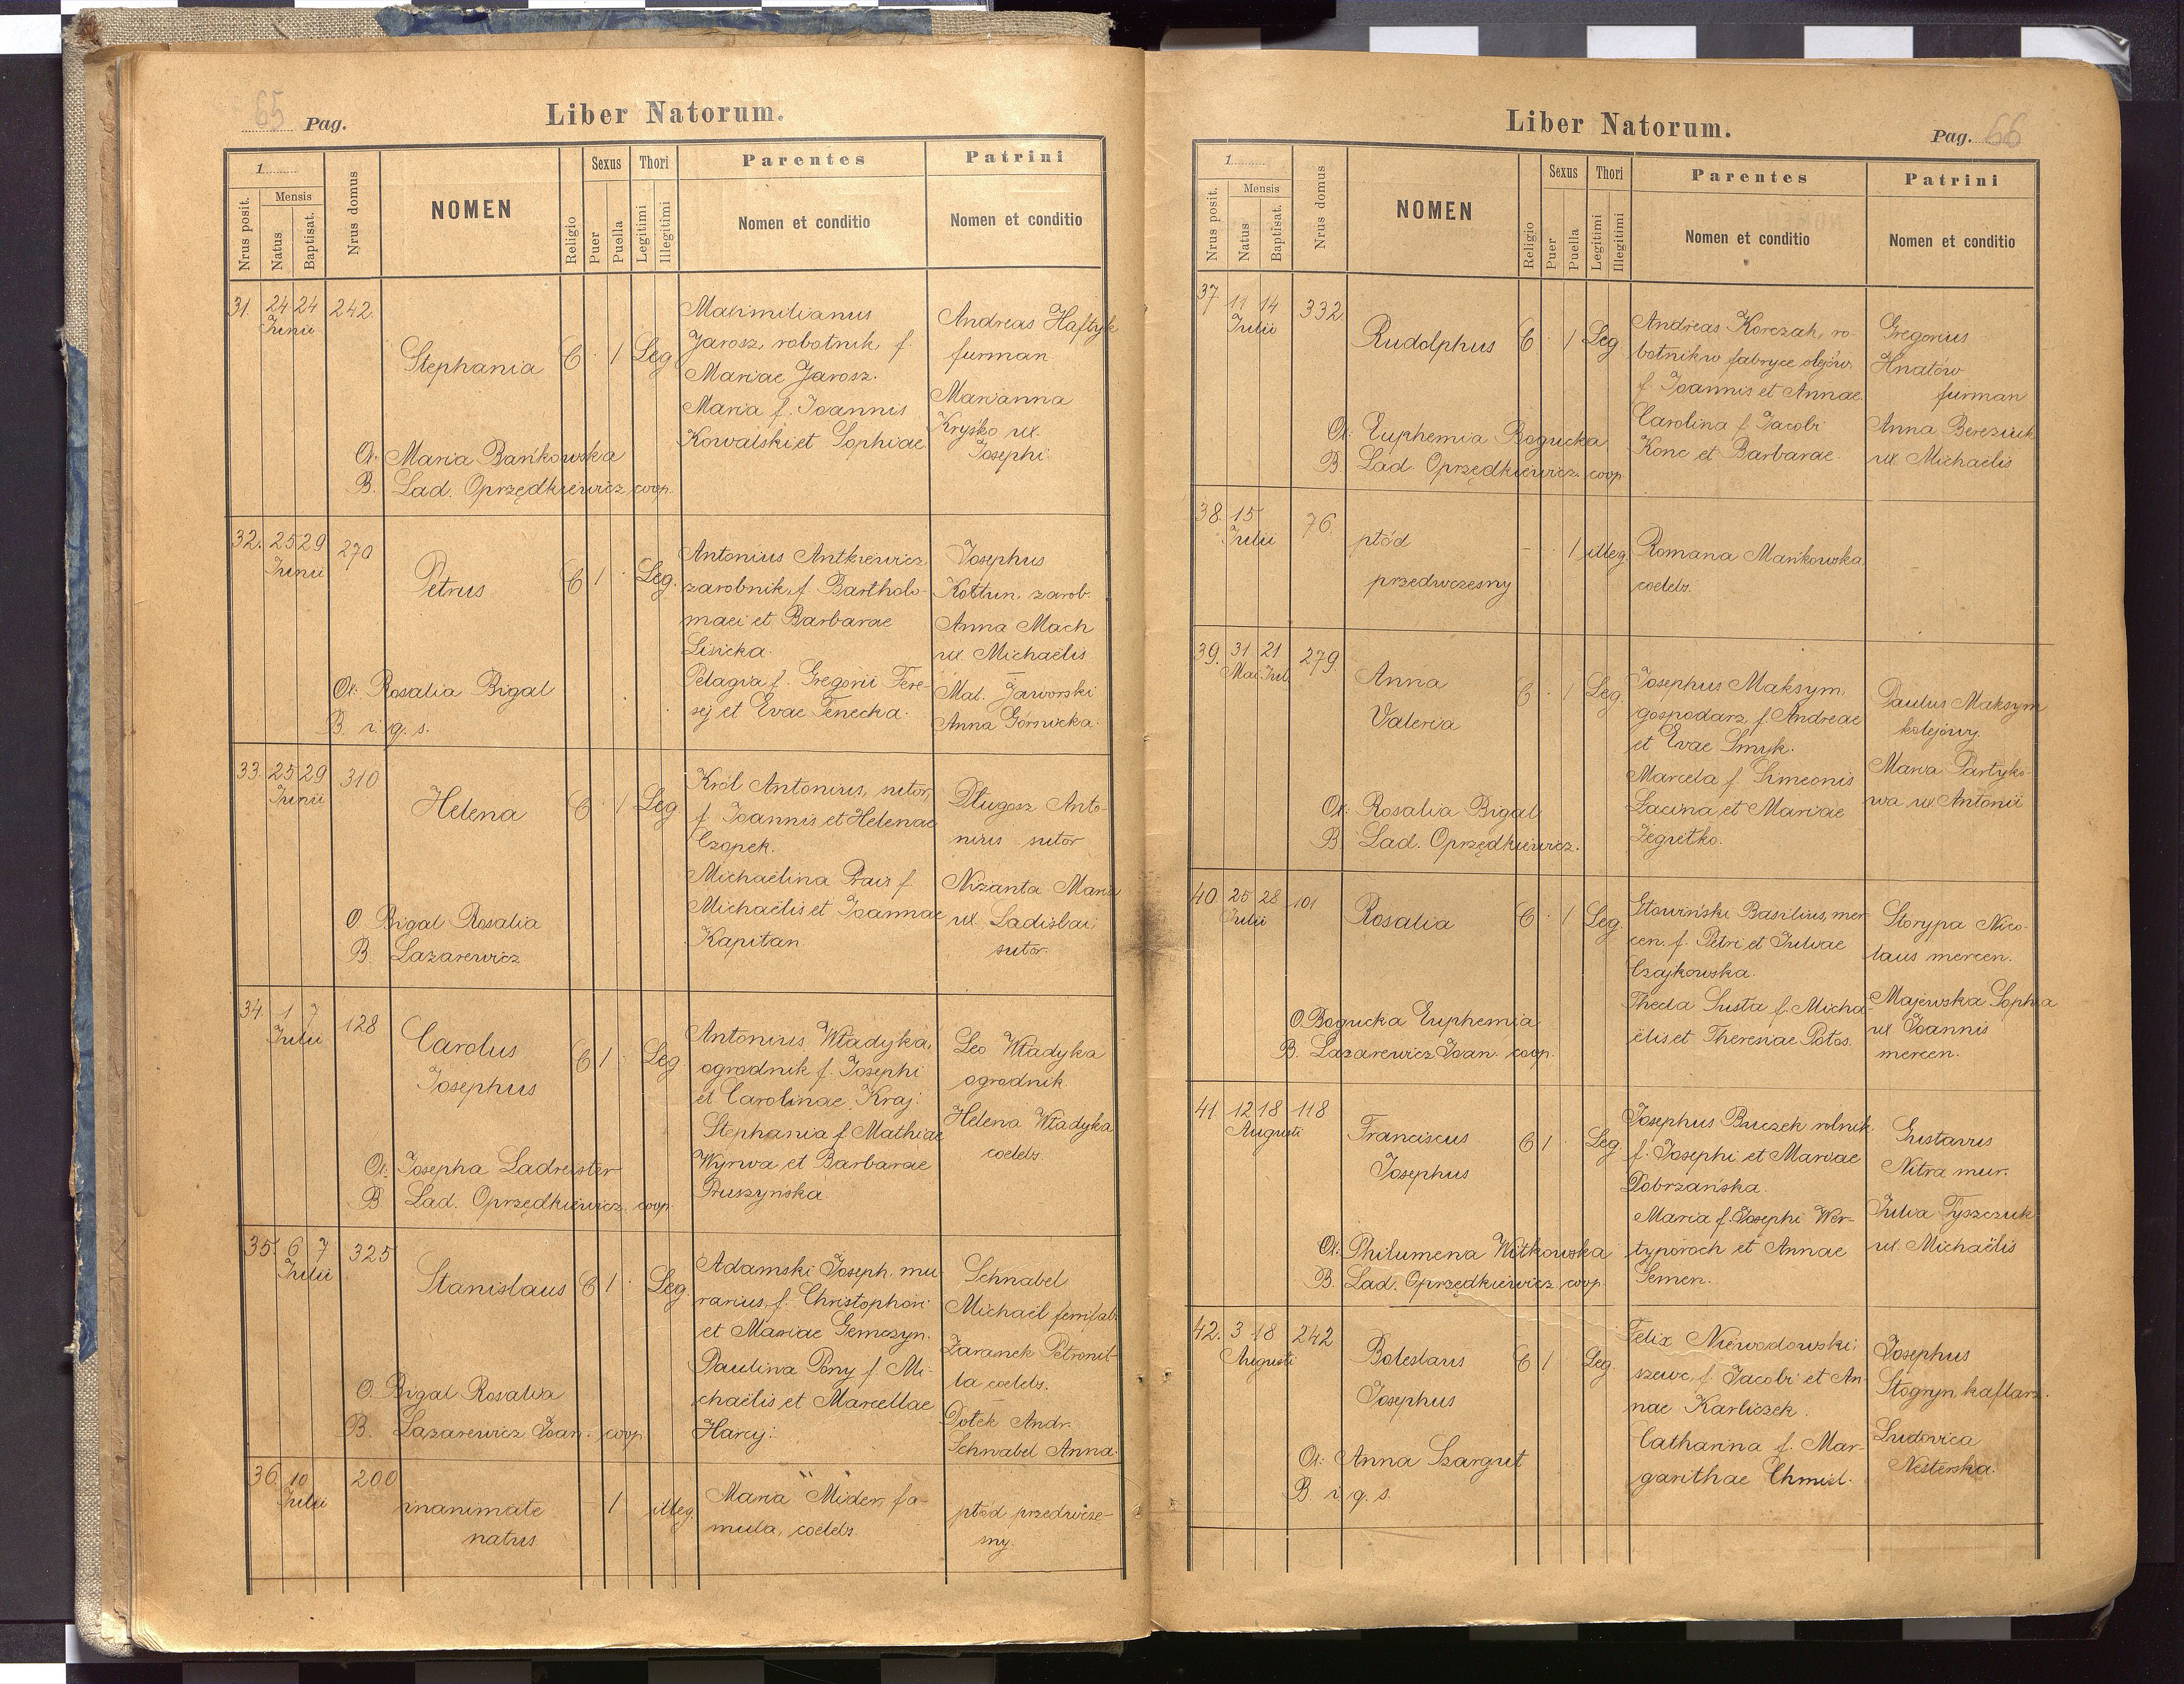 65 Pag.
Liber Natorum.
1.
Nrus posit.
Mensis
Natus
Baptisat.
Nrus domus
NOMEN
Religio
Sexus
Puer
Puella
Thori
Legitimi
Illegitimi
Parentes
Nomen et conditio
Patrini
Nomen et conditio
31. 24 24 242.
Junii
Stephania C · 1 Leg
Maximilianus
Jarosz, robotnik f.
Mariae Jarosz.
Maria f. Joannis
Kowalski et Sophiae
Andreas Haftyk
furman
Marianna
Kryśko ux.
Josephi
O. Maria Bańkowska
B. Lad. Oprzędkiewicz, coop.
32. 25 29 270
Junii
Petrus C 1 · Leg.
Antonius Antkiewicz,
zarobnik, f. Bartholo-
maei et Barbarae
Lisicka.
Pelagia f. Gregorii Tere-
sej et Evae Tenecka.
Josephus
Kołtun, zarob.
Anna Mach
ux. Michaëlis
Mat. Jaworski
Anna Górnicka.
Ot. Rosalia Bigal
B. i. q. s.
33. 25 29 310
Junii
Helena C · 1 Leg
Król Antonius, sutor,
f. Joannis et Helenae
Czopek.
Michaëlina Prais f.
Michaëlis et Joannae
Kapitan
Długosz Anto-
nius sutor
Nizanta Maria
ux. Ladislai
sutor.
O. Bigal Rosalia
B. Lazarewicz
34. 1 7 128
Julii
Carolus
Josephus C 1 · Leg
Antonius Władyka,
ogrodnik f. Josephi
et Carolinae Kraj.
Stephania f. Mathiae
Wyrwa et Barbarae
Pruszyńska
Leo Władyka
ogrodnik.
Helena Władyka
coelebs.
Ot. Josepha Ladreister
B. Lad. Oprzędkiewicz, coop.
35. 6 7 325
Julii
Stanislaus C 1 · Leg.
Adamski Joseph. mu-
rarius, f. Christophori
et Mariae Gemczyn.
Paulina Pony f. Mi-
chaëlis et Marcellae
Harcj.
Schnabel
Michaël ferrifab.
Zaranek Petronil-
la coelebs.
Dołek Andr.
Schnabel Anna.
O. Bigal Rosalia
B. Lazarewicz Joan. coop.
36. 10 200
Julii
inanimate
natus - 1 illeg.
Maria Mider, fa-
mula, coelebs
płód przedwcze-
sny.
Liber Natorum.
Pag. 66
1.
Nrus posit.
Mensis
Natus
Baptisat.
Nrus domus
NOMEN
Religio
Sexus
Puer
Puella
Thori
Legitimi
Illegitimi
Parentes
Nomen et conditio
Patrini
Nomen et conditio
37. 11 14 332
Julii
Rudolphus C · 1 Leg
Andreas Korczak, ro-
botnik w fabryce olejów,
f. Joannis et Annae.
Carolina f. Jacobi
Konc et Barbarae.
Gregorius
Hnatów
furman
Anna Bereziuk
ux. Michaëlis
Ot. Euphemia Bogucka
B. Lad. Oprzędkiewicz. coop.
38. 15 76.
Julii
płód
przedwczesny - · 1 illeg.
Romana Mańkowska,
coelebs.
39. 31 21 279
Mai. Jul.
Anna
Valeria C · 1 Leg.
Josephus Maksym,
gospodarz, f. Andreae
et Evae Smyk.
Marcela f. Simeonis
Lacina et Mariae
Żegietko.
Paulus Maksym
kolejowy.
Maria Partyko-
wa ux. Antonii
Ot. Rosalia Bigal
B. Lad. Oprzędkiewicz.
40. 25 28 101
Julii
Rosalia C · 1 Leg.
Głowiński Basilius, mer-
cen. f. Petri et Juliae
Czajkowska.
Thecla Susta f. Micha-
ëlis et Theresiae Potos.
Storypa Nico-
laus mercen.
Majewska Sophia
ux. Joannis
mercen.
O. Bogucka Euphemia
B. Lazarewicz Joan. coop.
41. 12 18 118
Augusti
Franciscus
Josephus C 1 · Leg.
Josephus Buczek rolnik.
f. Josephi et Mariae
Dobrzańska.
Maria f. Josephi Wer-
typoroch et Annae
Semen.
Gustavus
Nitra mur.
Julia Tyszczuk
ux. Michaëlis
Ot. Philumena Witkowska
B. Lad. Oprzędkiewicz. coop.
42. 3 18 242
Augusti
Boleslaus
Josephus C 1 · Leg.
Felix Niewodowski,
szewc, f. Jacobi et An-
nae Karliczek.
Catharina f. Mar-
garithae Chmiel.
Josephus
Stogryn kaflarz.
Ludovica
Nesterska.
Ot. Anna Szargut
B i. q. s.